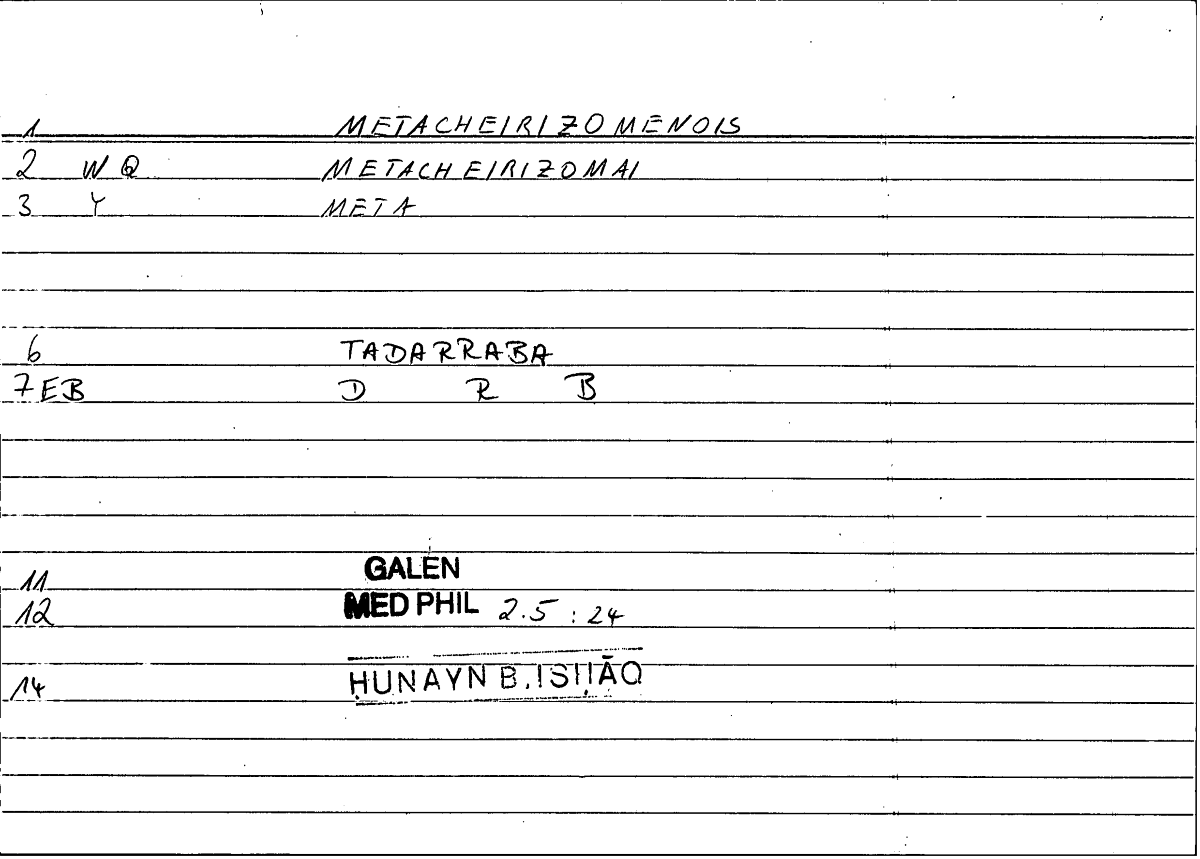 1 METACHEIRIZOMENOIS
2 WQ METACHEIRIZOMAI
3 Y META
6 TADARRABA
7 EB D R B
11 GALEN
12 MED PHIL 2.5 : 24
14 ḤUNAYN B. ISḤĀQ